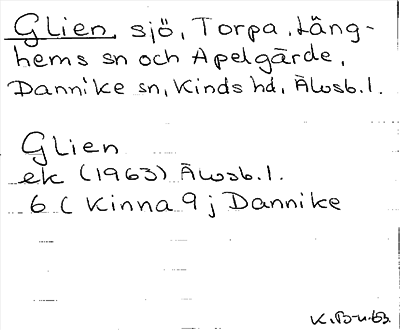 Glien, sjö, Torpa, Läng-
hems sn och Apelgärde,
Dannike sn, Kinds hd, Älvsb. l.
Glien
ek (1963) Älvsb. l.
6 C Kinna 9 j Dannike